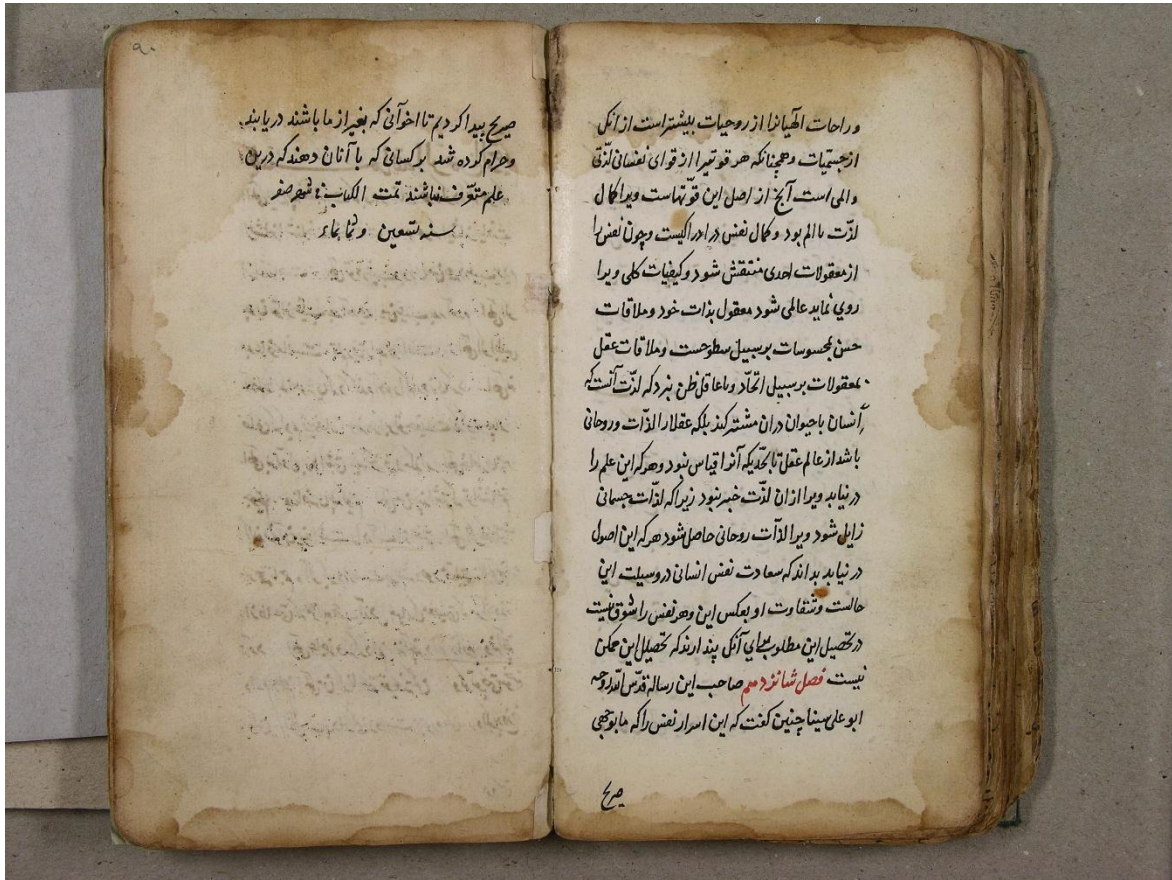 وراحات الهیانرا از روحیات بیشتر است از انکی
از جسمیات وهمچنانکه هر قوتیرا از قوای نفسانی لذتی
والمی است آنج از اصل این قوتهاست ویرا کمال
لذت باالم بود وکمال نفس در ادراکیست وچون نفس را
از معقولات احدی منتقش شود وکیفیات کلی ویرا
روی نماید عالمی شود معقول بذات خود وملاقات
حس بمحسوسات بر سبیل سطوحست وملاقات عقل
بمعقولات بر سبیل اتحاد وباعاقل ظن نبرد که لذت آنست که
انسان باحیوان دران مشترکند بلکه عقلارا لذات وروحانی
باشد از عالم عقل تابحدیکه آنرا قیاس نبود وهر که این علم را
در نیابد ویرا ازان لذت خبر نبود زیرا که لذات جسمانی
زایل شود ویرا لذات روحانی حاصل شود هر که این اصول
در نیابد بداند که سعادت نفس انسانی در وسیلت این
حالست وشقاوت او بعکس این وهر نفس را شوق نیست
در تحصیل این مطلوب برای آنکی پندارند که تحصیل این ممکن
نیست فصل شانزدهم صاحب این رساله قدس الله روحه
ابو علی سینا چنین گفت که این اسرار نفس را که ما بوجهی
صریح
۹۰
صریح پیدا کردیم تا اخوآنی که بغیر از ما باشند دریابند
وحرام کرده شد بر کسانی که با آنان دهند که درین
علم متعرف نباشند تمت الکتاب فی شهر صفر
سنه تسعین وثمانمائه